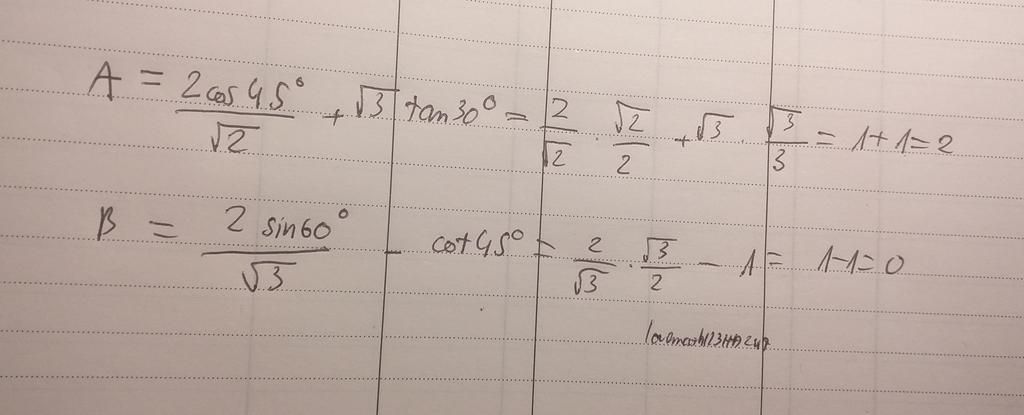 A = 2cos45°/√2 + √3 tan30° = 2/√2 · √2/2 + √3 · √3/3 = 1+1=2
B = 2 sin60°/√3 - cot45° = 2/√3 · √3/2 - 1 = 1-1=0